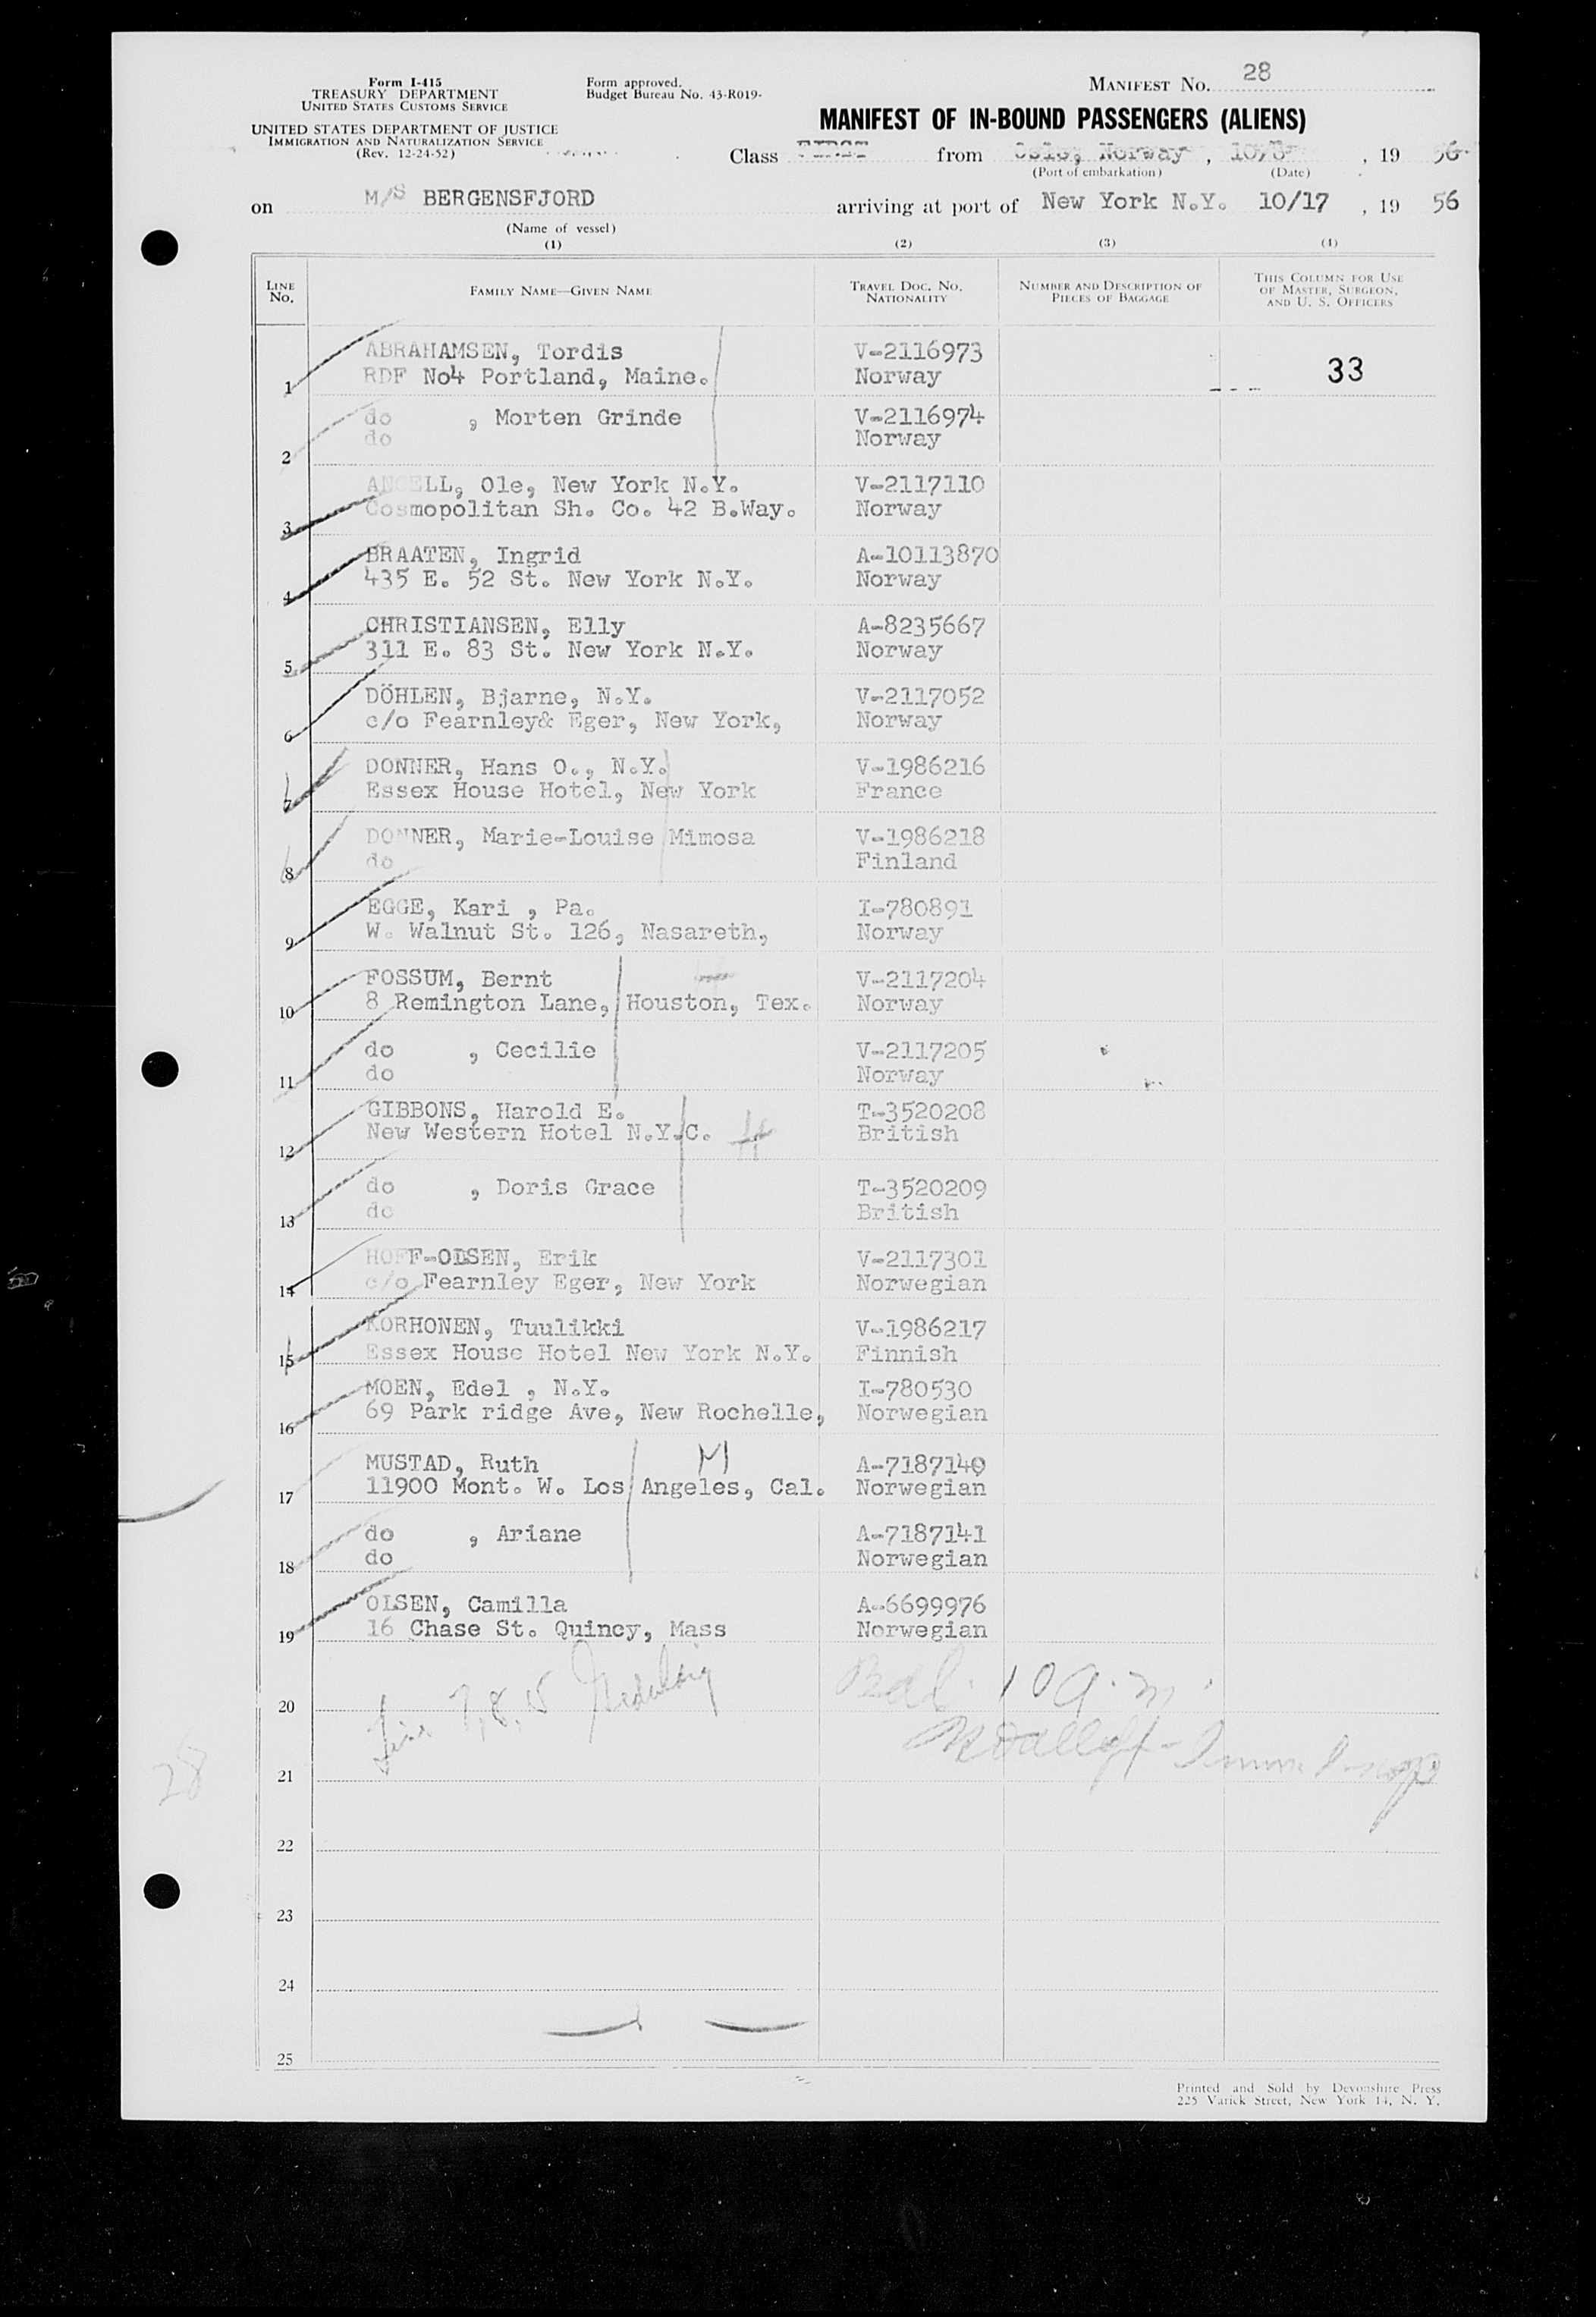 Form I-415
TREASURY DEPARTMENT
UNITED STATES CUSTOMS SERVICE
UNITED STATES DEPARTMENT OF JUSTICE
IMMIGRATION AND NATURALIZATION SERVICE
(Rev. 12-24-52)
Form approved.
Budget Bureau No. 43-R019-
MANIFEST No. 28
MANIFEST OF IN-BOUND PASSENGERS (ALIENS)
Class FIRST from Oslo, Norway , 10/8 , 19 56
(Port of embarkation) (Date)
on M/S BERGENSFJORD arriving at port of New York N.Y. 10/17 , 19 56
(Name of vessel)
(1) (2) (3) (4)
LINE No. FAMILY NAME—GIVEN NAME TRAVEL DOC. NO. NATIONALITY NUMBER AND DESCRIPTION OF PIECES OF BAGGAGE THIS COLUMN FOR USE OF MASTER, SURGEON, AND U. S. OFFICERS
ABRAHAMSEN, Tordis V-2116973
1 RDF No4 Portland, Maine. Norway 33
do , Morten Grinde V-2116974
2 do Norway
ANGELL, Ole, New York N.Y. V-2117110
3 Cosmopolitan Sh. Co. 42 B.Way. Norway
BRAATEN, Ingrid A-10113870
4 435 E. 52 St. New York N.Y. Norway
CHRISTIANSEN, Elly A-8235667
5 311 E. 83 St. New York N.Y. Norway
DÖHLEN, Bjarne, N.Y. V-2117052
6 c/o Fearnley& Eger, New York, Norway
DONNER, Hans O., N.Y. V-1986216
7 Essex House Hotel, New York France
DONNER, Marie-Louise Mimosa V-1986218
8 do Finland
EGGE, Kari , Pa. I-780891
9 W. Walnut St. 126, Nasareth, Norway
FOSSUM, Bernt V-2117204
10 8 Remington Lane, Houston, Tex. Norway
do , Cecilie V-2117205
11 do Norway
GIBBONS, Harold E. T-3520208
12 New Western Hotel N.Y.C. British
do , Doris Grace T-3520209
13 do British
HOFF-OLSEN, Erik V-2117301
14 c/o Fearnley Eger, New York Norwegian
KORHONEN, Tuulikki V-1986217
15 Essex House Hotel New York N.Y. Finnish
MOEN, Edel , N.Y. I-780530
16 69 Park ridge Ave, New Rochelle, Norwegian
MUSTAD, Ruth M A-7187140
17 11900 Mont. W. Los Angeles, Cal. Norwegian
do , Ariane A-7187141
18 do Norwegian
OLSEN, Camilla A-6699976
19 16 Chase St. Quincy, Mass Norwegian
20 Line 7, 8, 15 10 a.m.
21
28
22
23
24
25
Printed and Sold by Devonshire Press
225 Varick Street, New York 14, N. Y.